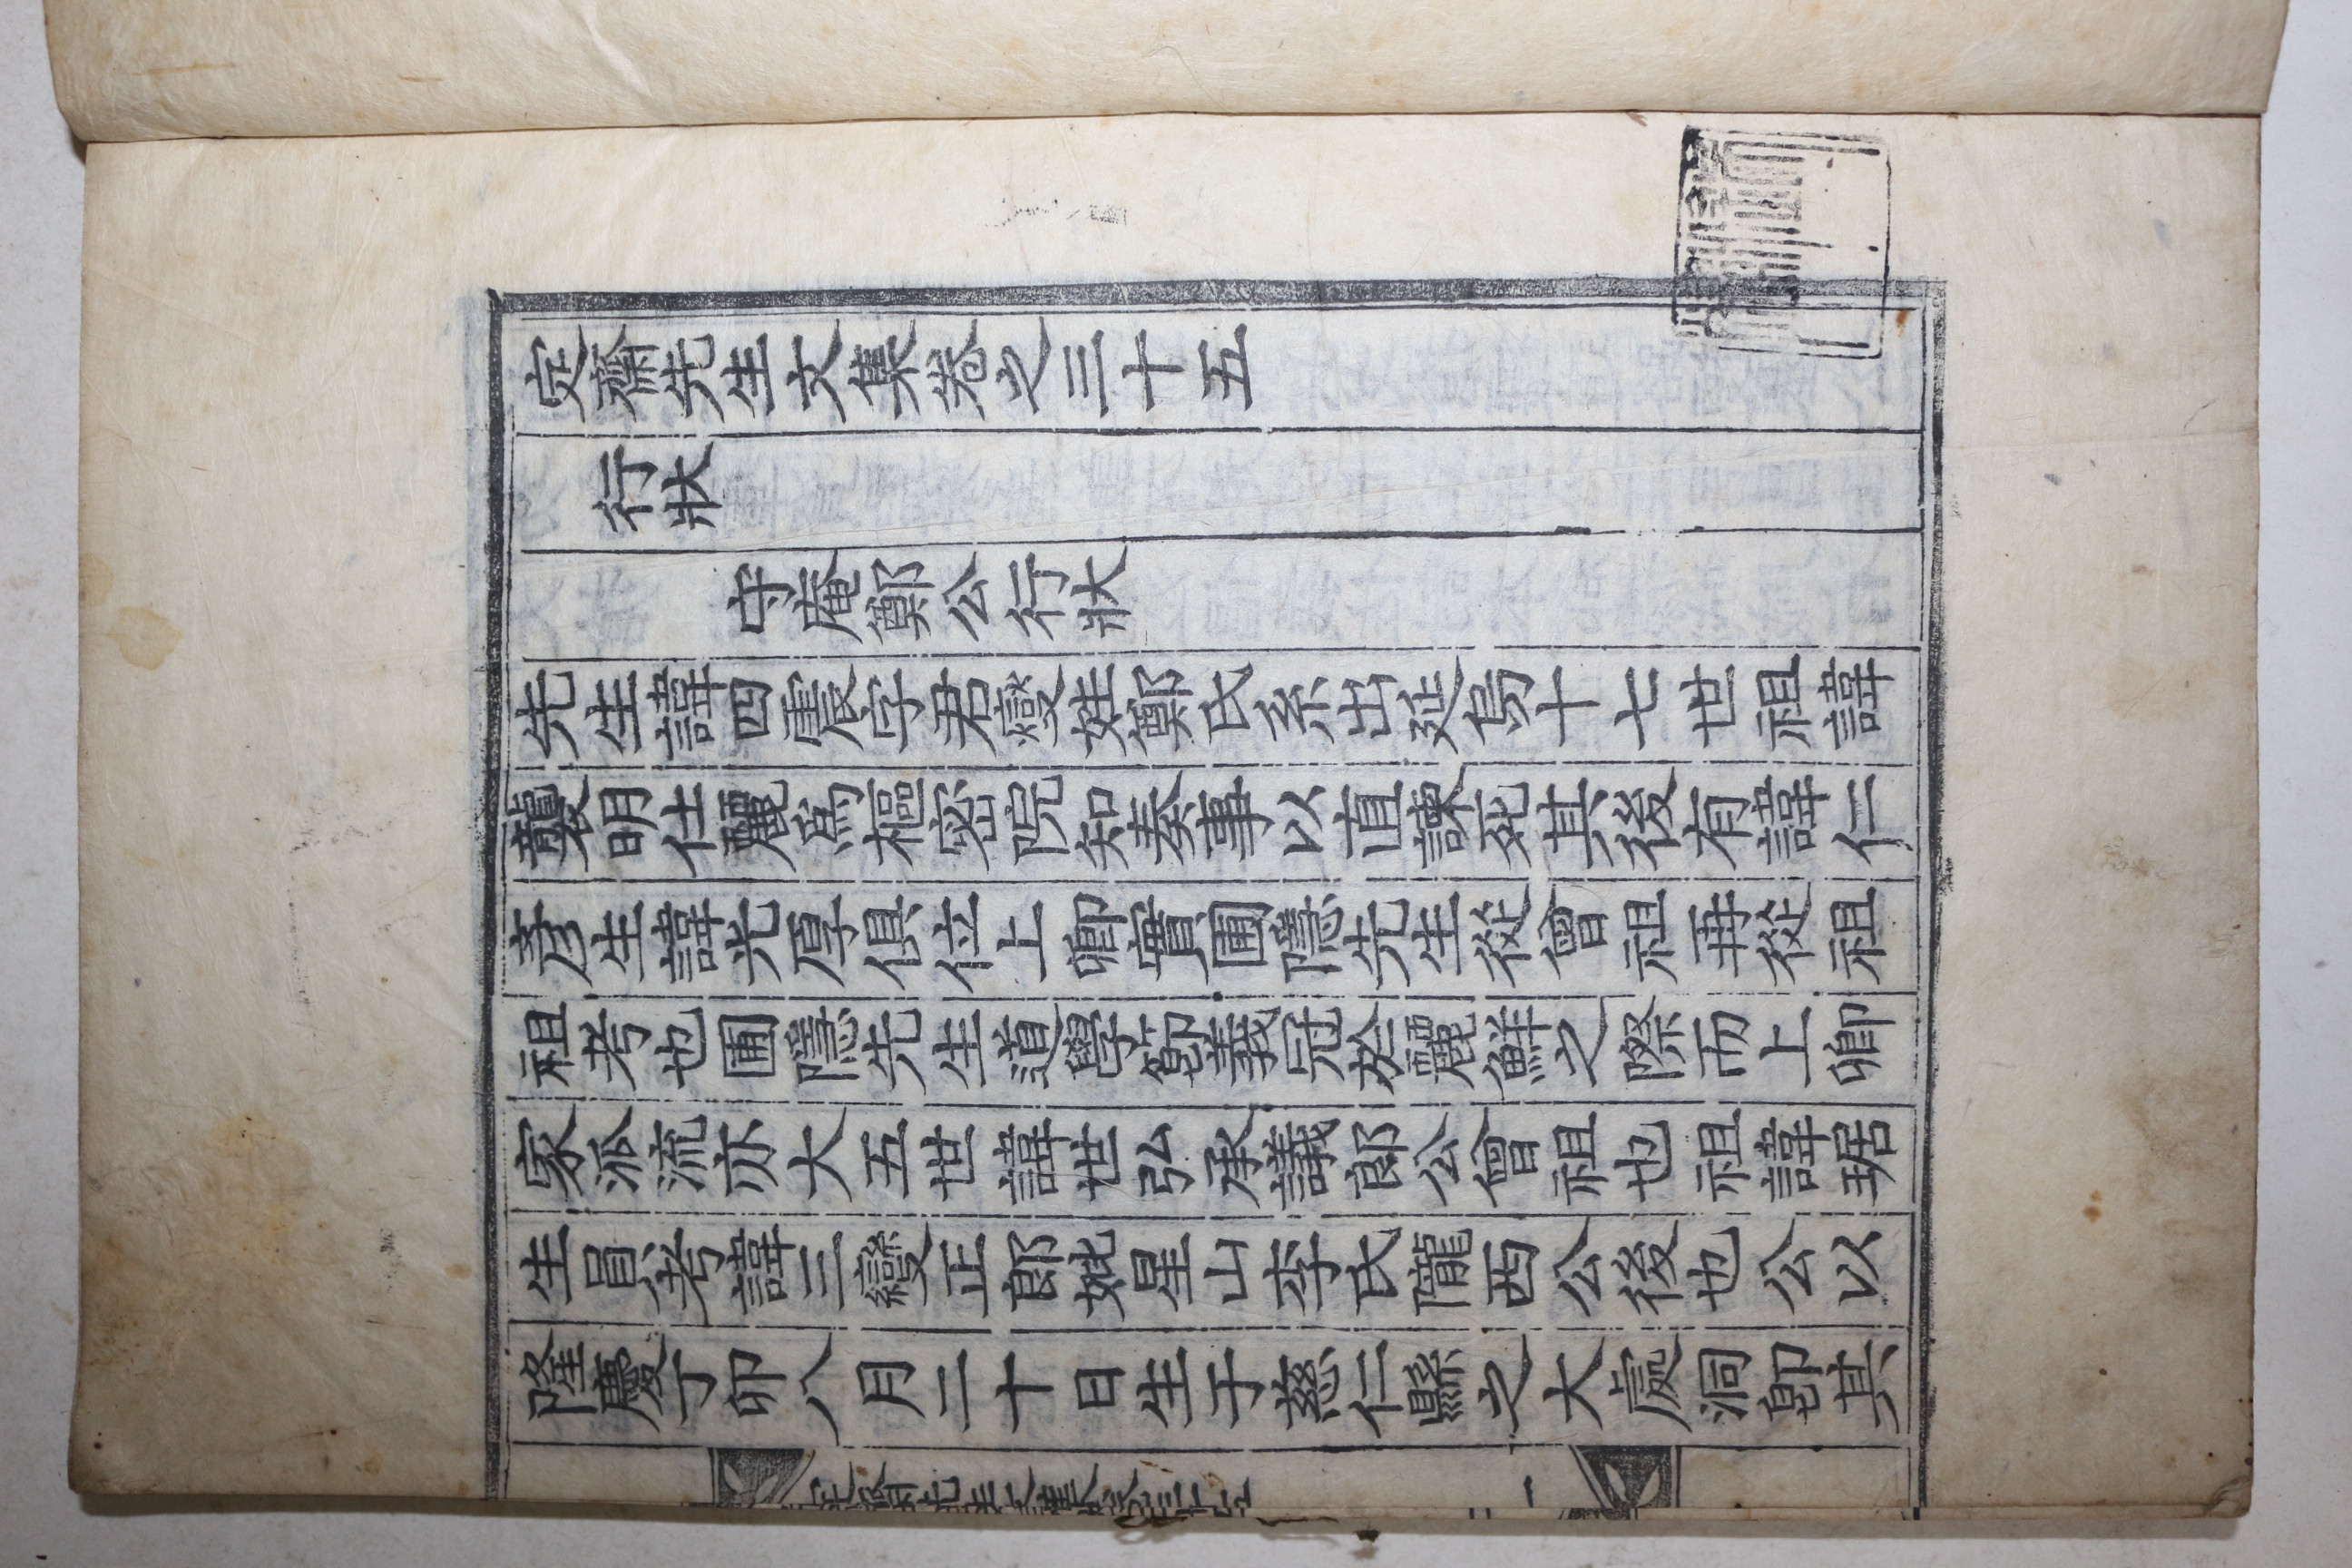 定齋先生文集卷之三十五
行狀
守庵鄭公行狀
先生諱四震字君燮姓鄭氏系出延烏十七世祖諱
襲明仕麗爲樞密院知奏事以直諫死其後有諱仁
彦生諱光厚俱位上卿實圃隱先生從曾祖再從祖
祖考也圃隱先生道學節義冠於麗鮮之際而上卿
家派流亦大五世諱世弘承議郎公曾祖也祖諱琚
生員考諱三燮正郎妣星山李氏隴西公後也公以
隆慶丁卯八月二十日生于慈仁縣之大處洞卽其
定齋先生文集卷之三十五 一